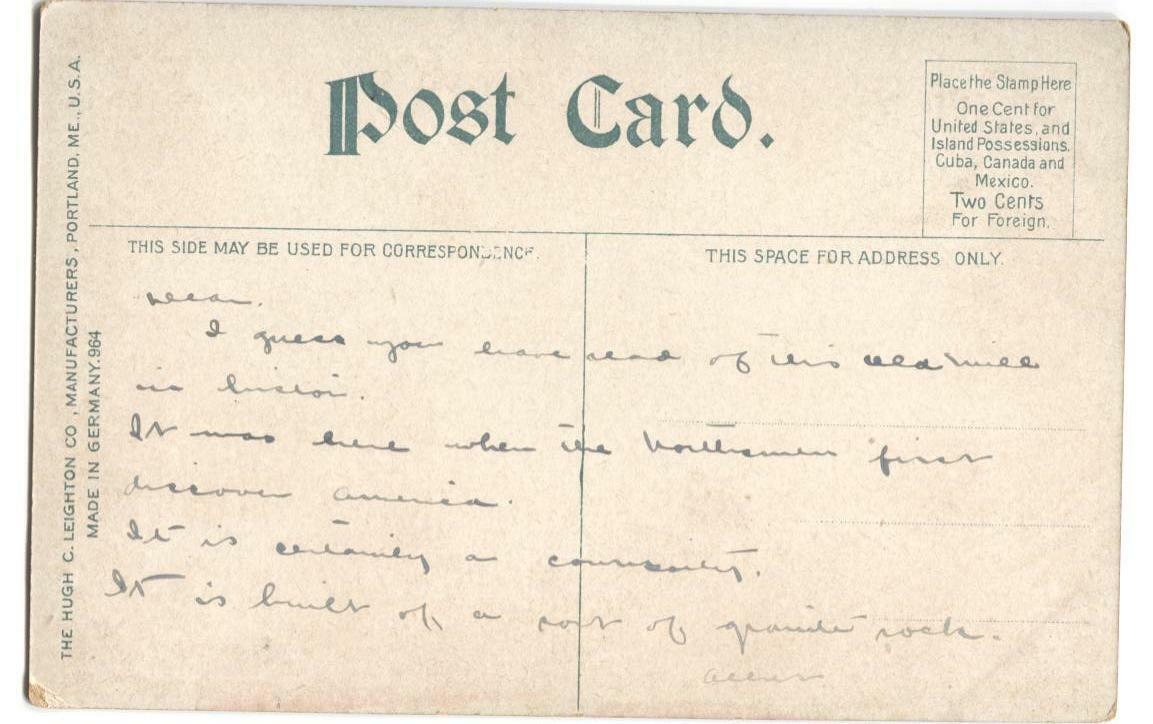 THE HUGH C. LEIGHTON CO, MANUFACTURERS, PORTLAND, ME., U.S.A.
MADE IN GERMANY. 964
Post Card.
Place the Stamp Here
One Cent for
United States, and
Island Possessions.
Cuba, Canada and
Mexico.
Two Cents
For Foreign.
THIS SIDE MAY BE USED FOR CORRESPONDENCE.
THIS SPACE FOR ADDRESS ONLY.
I guess you have read of this old mill
in histor.
It was here when the Northsmen first
discover America.
It is certainly a curiosity.
It is built of a sort of granite rock.